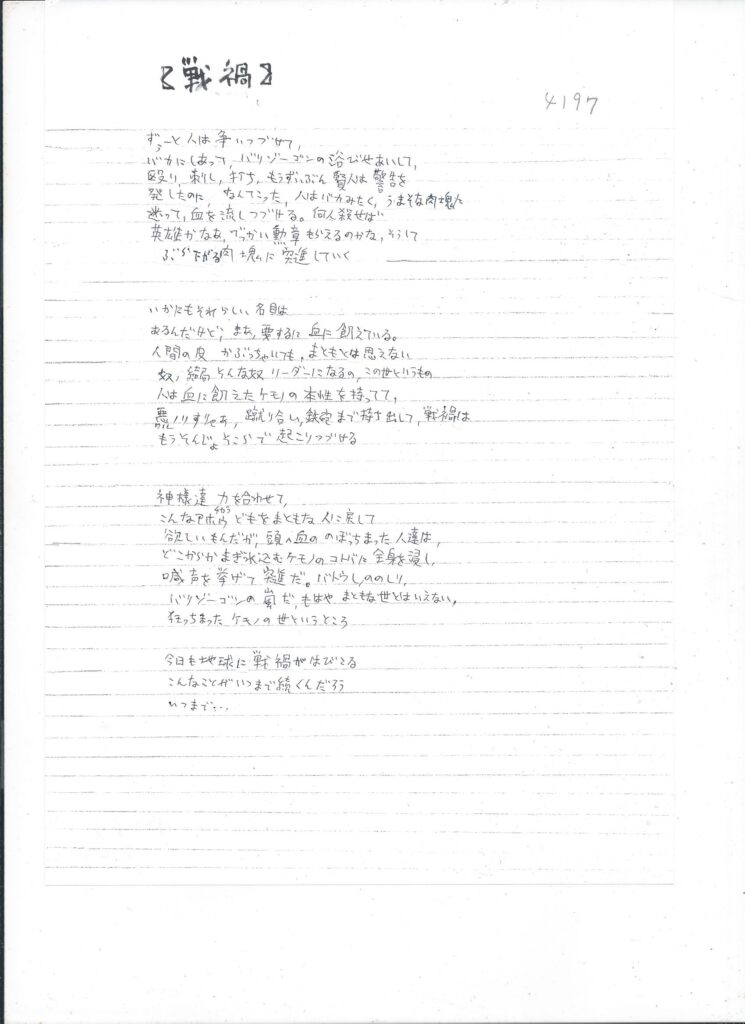 【戦禍】
4197
ずぅーと人は争いつづけて、
バカにしあって、バリゾーゴンの浴びせあいして、
殴り、刺し、打ち、もうずいぶん賢人は警告を
発したのに、なんてこった、人はバカみたく、うまそな肉塊に
迷って、血を流しつづける。何人殺せば
英雄かなあ、でっかい勲章もらえるのかな、そうして
ぶら下がる肉塊に突進していく
いかにもそれらしい名目は
あるんだけど、まあ、要するに血に飢えている。
人間の皮かぶっちゃいても、まともとは思えない
奴、結局そんな奴リーダーになるの、この世というもの
人は血に飢えたケモノの本性を持ってて、
悪ノリすりゃあ、蹴り合い、鉄砲まで持ち出して、戦禍は
もうそんじょそこらで起こりつづける
神様達力を合わせて、
こんなアホウどもをまともな人に戻して
欲しいもんだが、頭へ血ののぼっちまった人達は、
どこからかまぎれ込むケモノのコトバに全身を浸し、
喊声を挙げて突進だ。バトウし、ののしり、
バリゾーゴンの嵐だ、もはやまともな世とはいえない。
狂っちまったケモノの世というところ
今日も地球に戦禍がはびこる
こんなことがいつまで続くんだろう
いつまで...